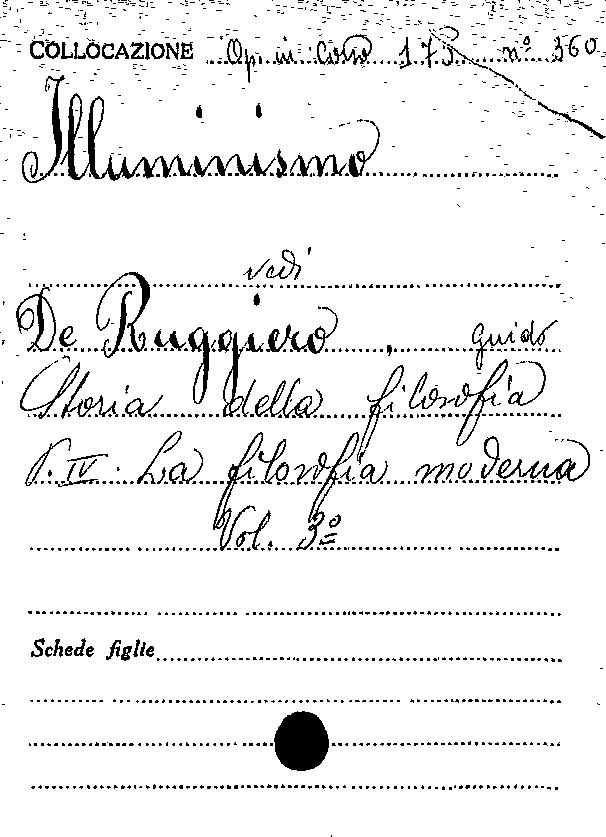 COLLOCAZIONE Op. in corso 175 nº 360
Illuminismo
vedi
De Ruggiero, Guido
Storia della filosofia
P. IV. La filosofia moderna
Vol. 3º
Schede figlie